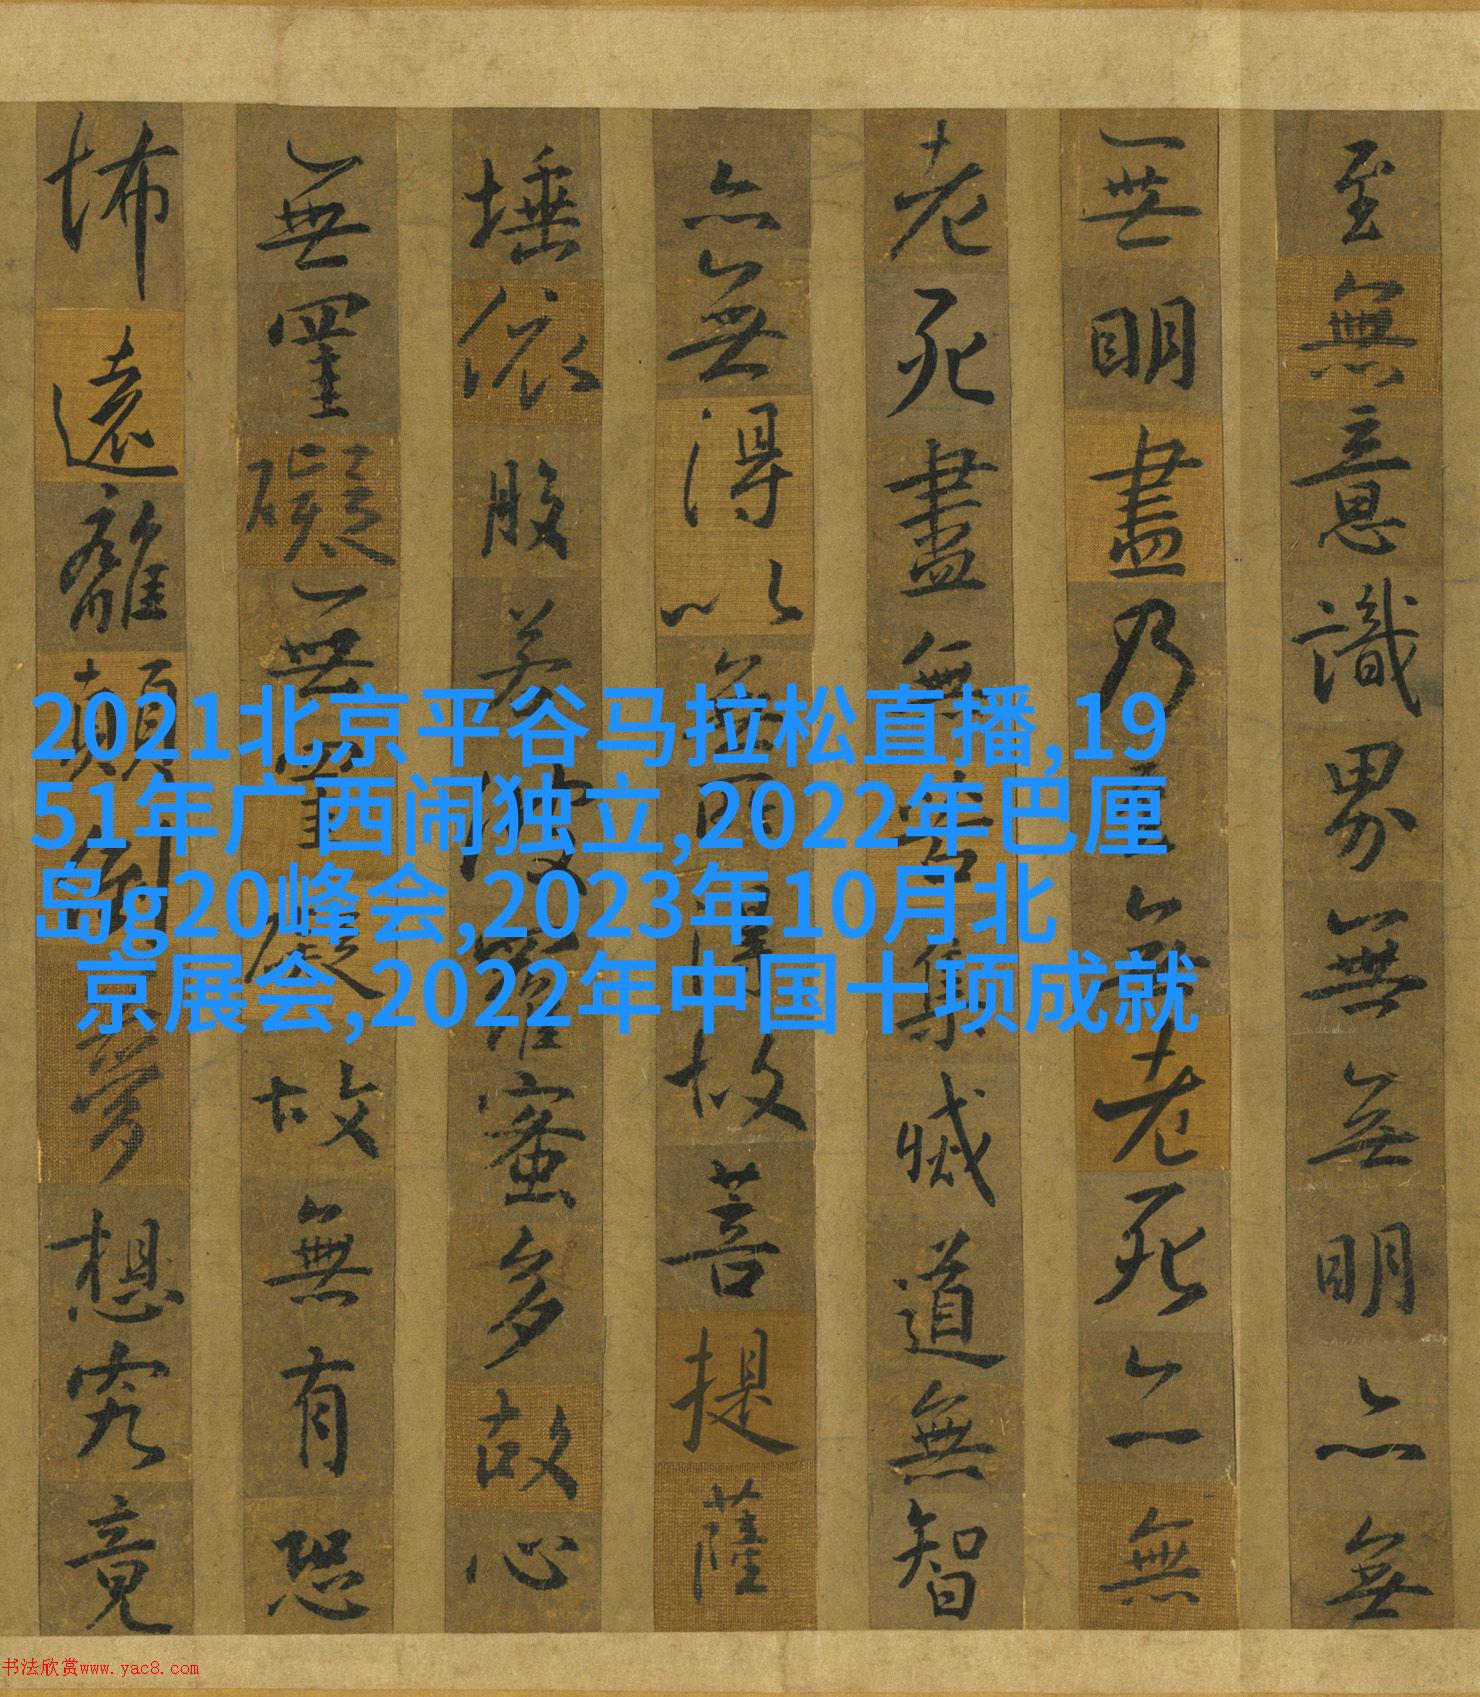 至無意識界無無明亦無
無明盡乃至無老死亦無
老死盡無苦集滅道無智
亦無得以無所得故菩提薩
埵依般若波羅蜜多故心
無罣礙無罣礙故無有恐
怖遠離顛倒夢想究竟
2021北京平谷马拉松直播,19
51年广西闹独立,2022年巴厘
岛g20峰会,2023年10月北
京展会,2022年中国十项成就
书法欣赏www.yac8.com